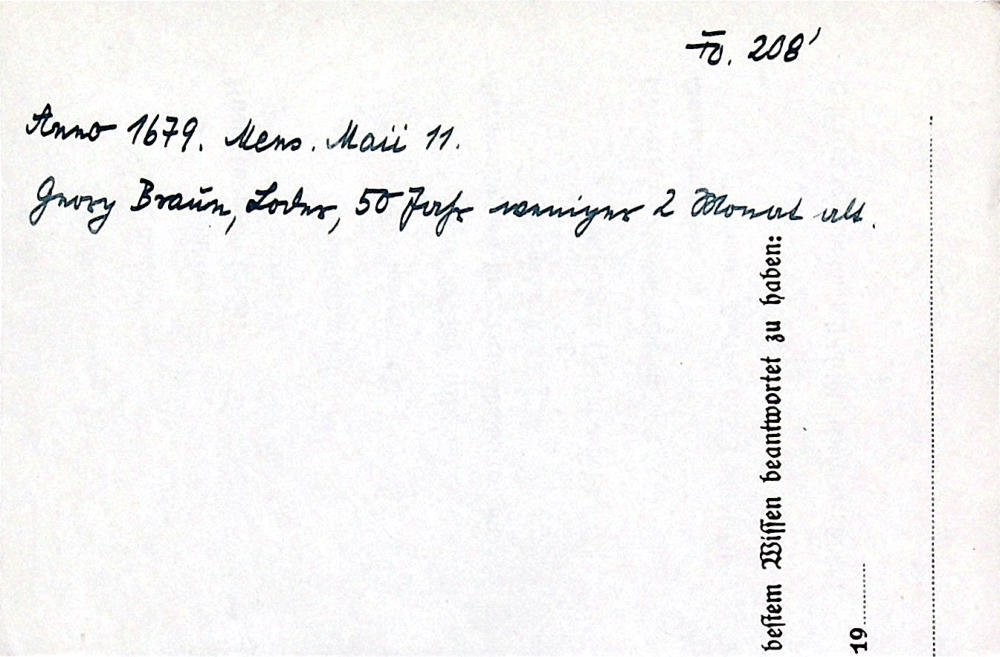 Fo. 208'
Anno 1679. Mens. Maii 11.
Georg Braun, Loder, 50 Jahr weniger 2 Monat alt.
bestem Wissen beantwortet zu haben:
19